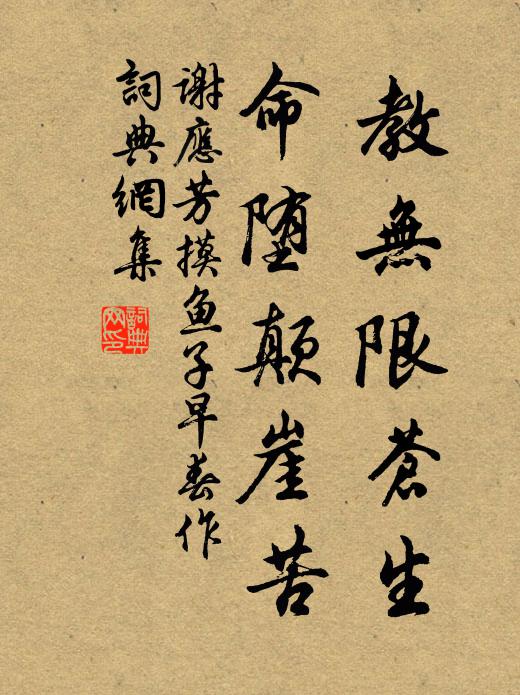 教無限蒼生
命堕顛崖苦
謝應芳摸鱼子早春作
詞典網集
詞典网印